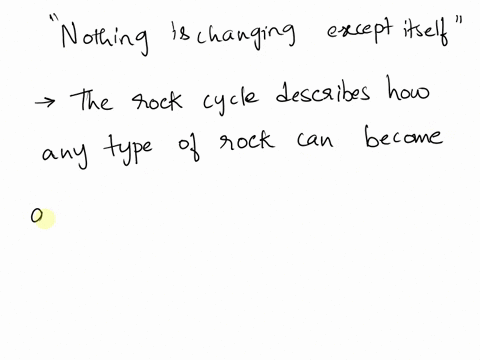 "Nothing is changing except itself"
→ The rock cycle describes how
any type of rock can become
o